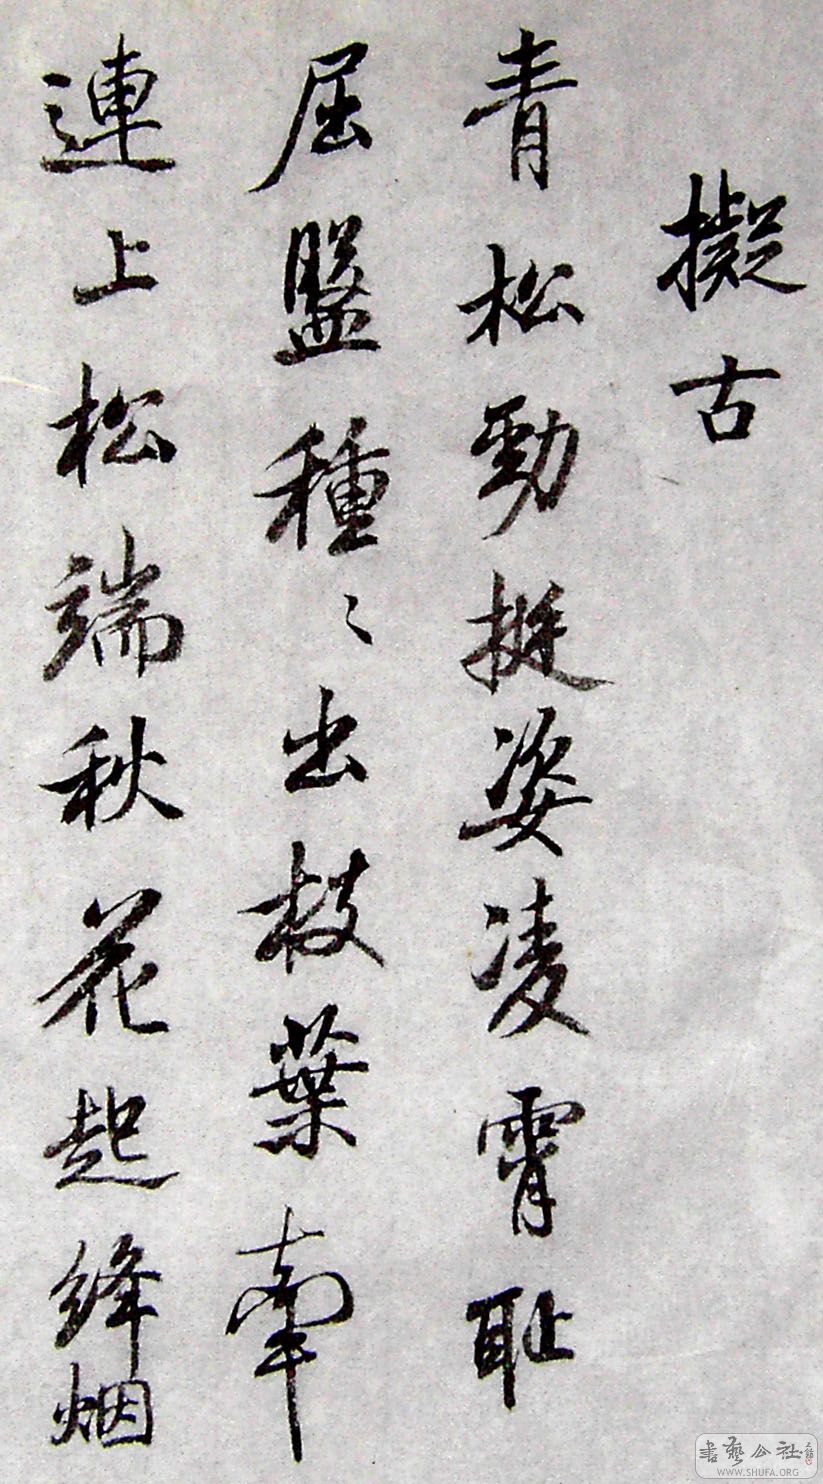 擬古
青松勁挺姿凌霄耻
屈盤種〻出枝葉牽
連上松端秋花起絳烟
書藝公社
WWW.SHUFA.ORG